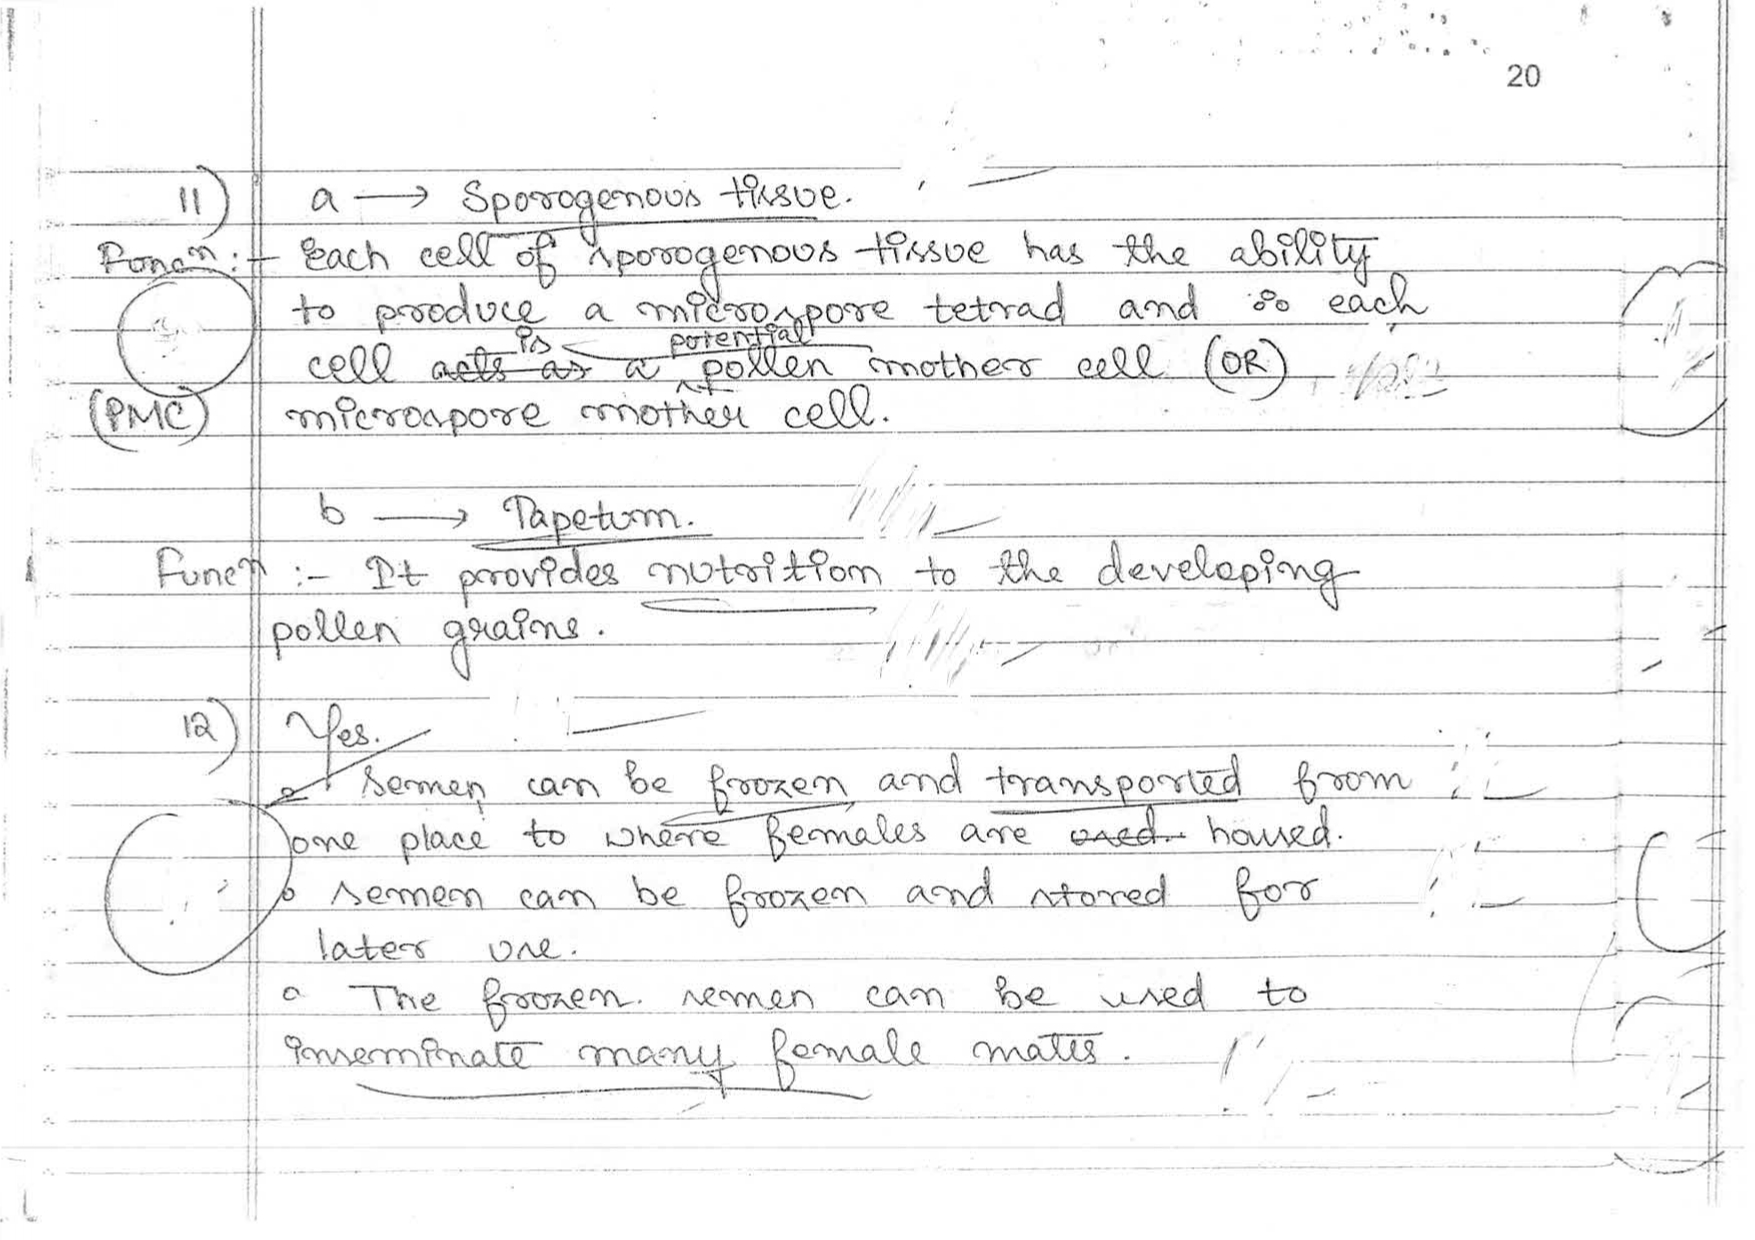 20
11) a → Sporogenous tissue.
Funcn :- Each cell of sporogenous tissue has the ability
to produce a microspore tetrad and ∴ each
is potential
cell acts as a pollen mother cell (OR)
(PMC) microspore mother cell.
b → Tapetum.
Funcn :- It provides nutrition to the developing
pollen grains.
12) Yes.
• Semen can be frozen and transported from
one place to where females are used housed.
• semen can be frozen and stored for
later use.
• The frozen semen can be used to
inseminate many female mates.